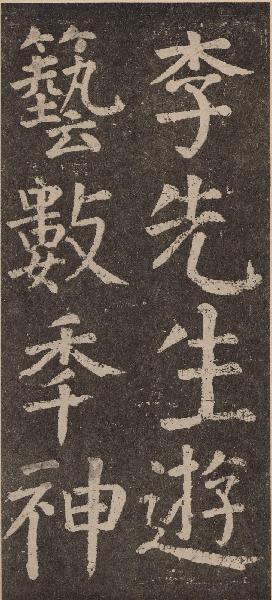 李先生遊
藝數秊神